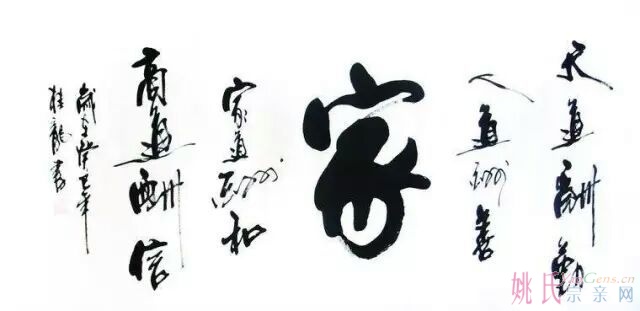 天道酬勤
人道酬善
家
家道酬和
商道酬信
歲在癸巳年
桂龍書
姚氏宗亲网
YaoGens.cn